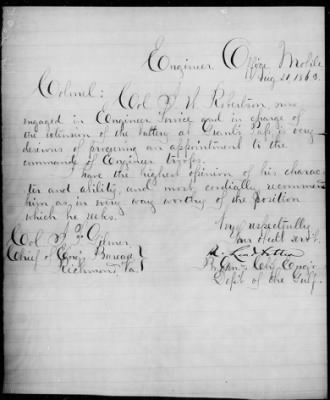 Engineer Office Mobile
Aug 21 1863.
Colonel:
Col J. W. Robertson, now
engaged in Engineer Service and in charge of
the extension of the battery at Grants Pass, is very
desirous of procuring an appointment to the
command of Engineer troops.
I have the highest opinion of his charac-
ter and ability, and most cordially recommend
him as, in every way worthy of the position
which he seeks.
Very respectfully
Your obdt servt.
Col J. F. Gilmer
Chief of Engr Bureau
Richmond Va.
Chf Engr
Dept of the Gulf.